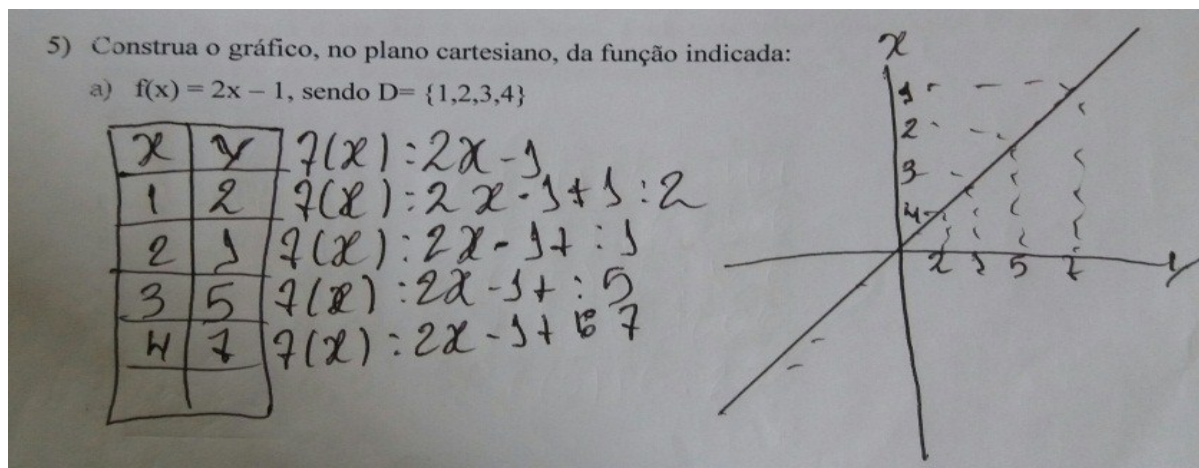 5) Construa o gráfico, no plano cartesiano, da função indicada:
a) f(x) = 2x – 1, sendo D= {1,2,3,4}
x y f(x) : 2x - 1
1 2 f(x) : 2x - 1 + 1 : 2
2 1 f(x) : 2x - 1 + : 1
3 5 f(x) : 2x - 1 + : 5
4 7 f(x) : 2x - 1 + 7
x
1
2
3
4
2 1 5 7 y